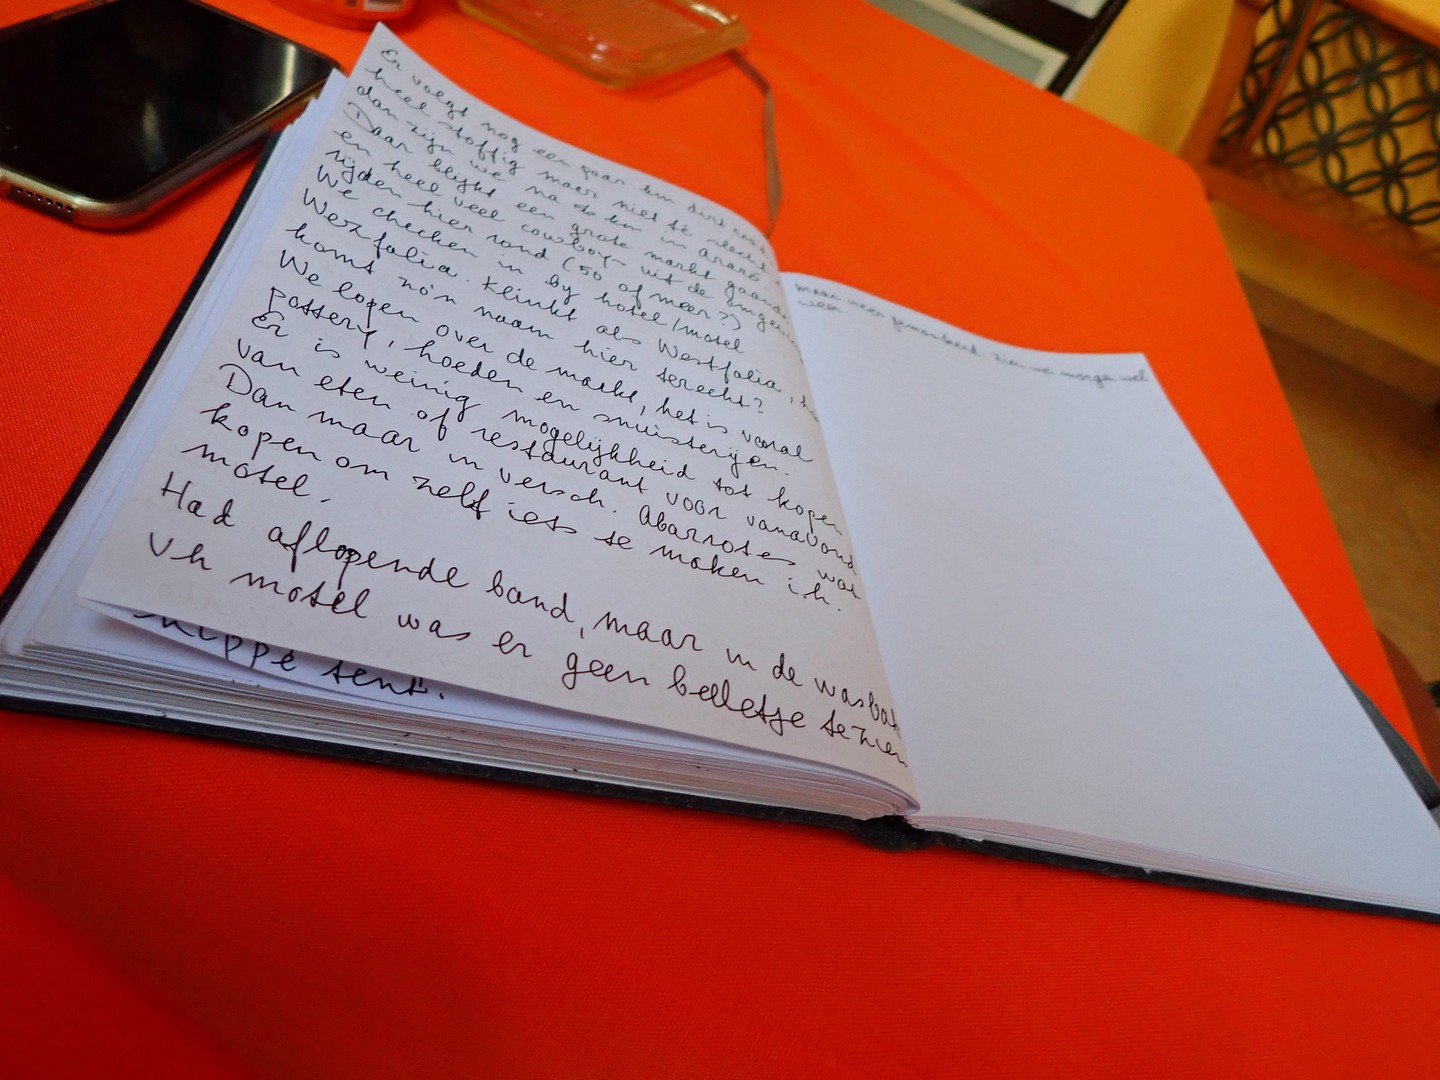 Er volgt nog een paar km dirt road
heel stoffig maar niet te slecht
dan zijn we na do km in
Daar blijkt een grote markt gaande
en heel veel cowboys uit de omgeving
rijden hier rond (50 of meer?)
We checken in by hotel/motel
Westfalia. Klinkt als Westfalia, hoe
komt zo'n naam hier terecht?
We lopen over de markt, het is vooral
pottery, hoeden en snuisterijen.
Er is weinig mogelijkheid tot kopen
van eten of restaurant voor vanavond
Dan maar in versch. Abarrotes wat
kopen om zelf iets te maken i.h.
motel.
Had aflopende band, maar in de wasbak
vh motel was er geen belletje te zien
skippe tent.
maar weer gemonteerd zien we morgen wel
weer